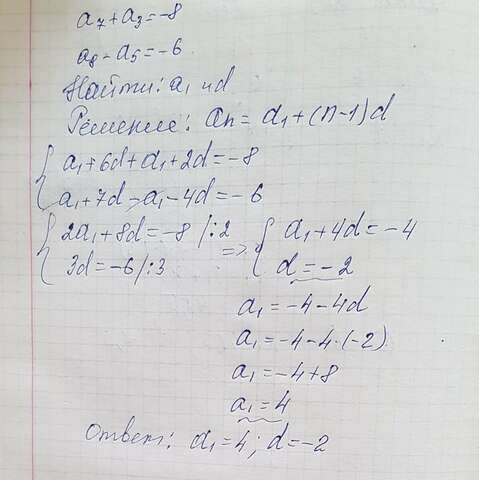 a₇ + a₃ = -8
a₈ - a₅ = -6
Найти: a₁ и d
Решение: an = a₁ + (n-1)d
{ a₁ + 6d + a₁ + 2d = -8
a₁ + 7d - a₁ - 4d = -6
{ 2a₁ + 8d = -8 /:2 => { a₁ + 4d = -4
3d = -6 /:3 d = -2
a₁ = -4 - 4d
a₁ = -4 - 4·(-2)
a₁ = -4 + 8
a₁ = 4
Ответ: a₁ = 4; d = -2